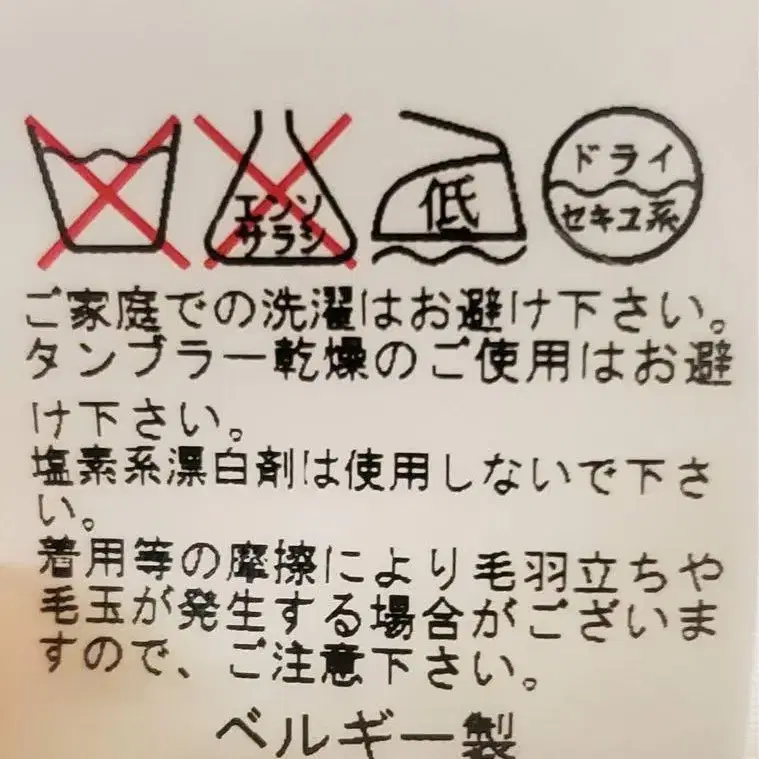 エンソ
サラシ
低
ドライ
セキユ系
ご家庭での洗濯はお避け下さい。
タンブラー乾燥のご使用はお避
け下さい。
塩素系漂白剤は使用しないで下さ
い。
着用等の摩擦により毛羽立ちや
毛玉が発生する場合がございま
すので、ご注意下さい。
ベルギー製